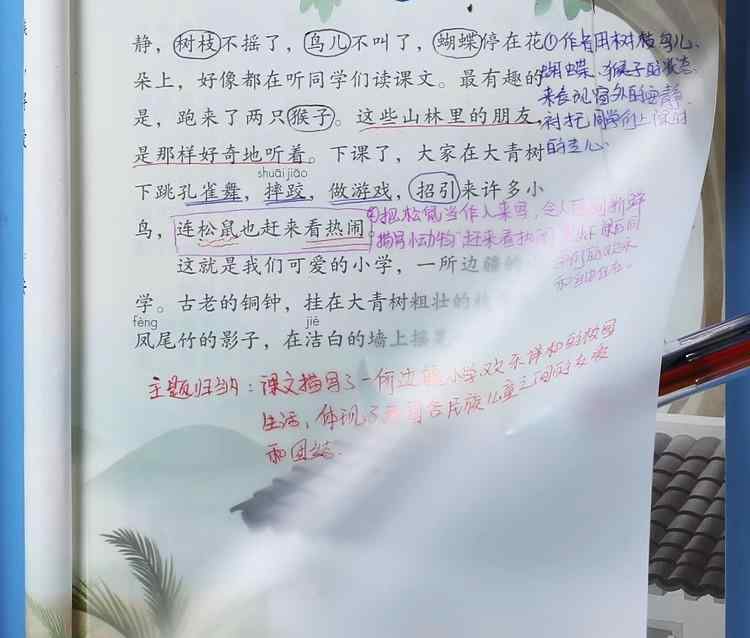 静，树枝不摇了，鸟儿不叫了，蝴蝶停在花
朵上，好像都在听同学们读课文。最有趣的
是，跑来了两只猴子。这些山林里的朋友，
是那样好奇地听着。下课了，大家在大青树
shuāi jiāo
下跳孔雀舞，摔跤，做游戏，招引来许多小
鸟，连松鼠也赶来看热闹。
这就是我们可爱的小学，一所边疆的
学。古老的铜钟，挂在大青树粗壮的枝
fèng jié
凤尾竹的影子，在洁白的墙上摇晃
①作者用树枝鸟儿、
蝴蝶、猴子的状态
来表现窗外的安静，
衬托同学们上课时
的专心
④把松鼠当作人来写，令人
描写小动物"赶来看热闹"
主题归纳：课文描写了一所边疆小学欢乐祥和的校园
生活，体现了我国各民族儿童之间的友爱
和团结.